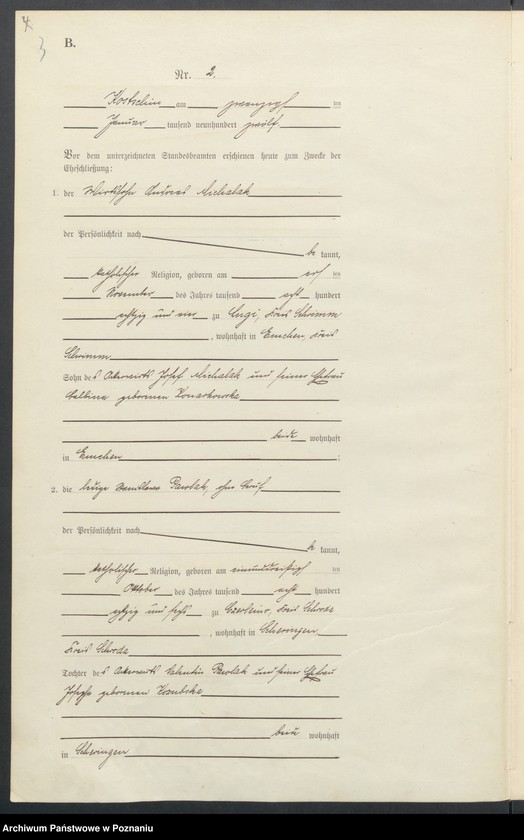 4
3
B.
Nr. 2.
Kostschin am zwanzigsten
Januar tausend neunhundert zwölf.
Vor dem unterzeichneten Standesbeamten erschienen heute zum Zwecke der
Eheschließung:
1. der Wirtssohn Andreas Michalak
der Persönlichkeit nach
be kannt,
katholischer Religion, geboren am elf ten
November des Jahres tausend acht hundert
achtzig und vier zu Lugi, Kreis Schrimm
, wohnhaft in Emchen, Kreis
Schrimm
Sohn des Ackerwirts Josef Michalak und seiner Ehefrau
Balbina geborenen
beide wohnhaft
in Emchen ;
2. die ledige Pawlak, ohne Beruf
der Persönlichkeit nach
be kannt,
katholischer Religion, geboren am einunddreißigs ten
Oktober des Jahres tausend acht hundert
achtzig und sechs zu Kreis Schroda
, wohnhaft in
Kreis Schroda
Tochter des Ackerwirts Valentin Pawlak und seiner Ehefrau
Josefa geborenen
beide wohnhaft
in
Archiwum Państwowe w Poznaniu